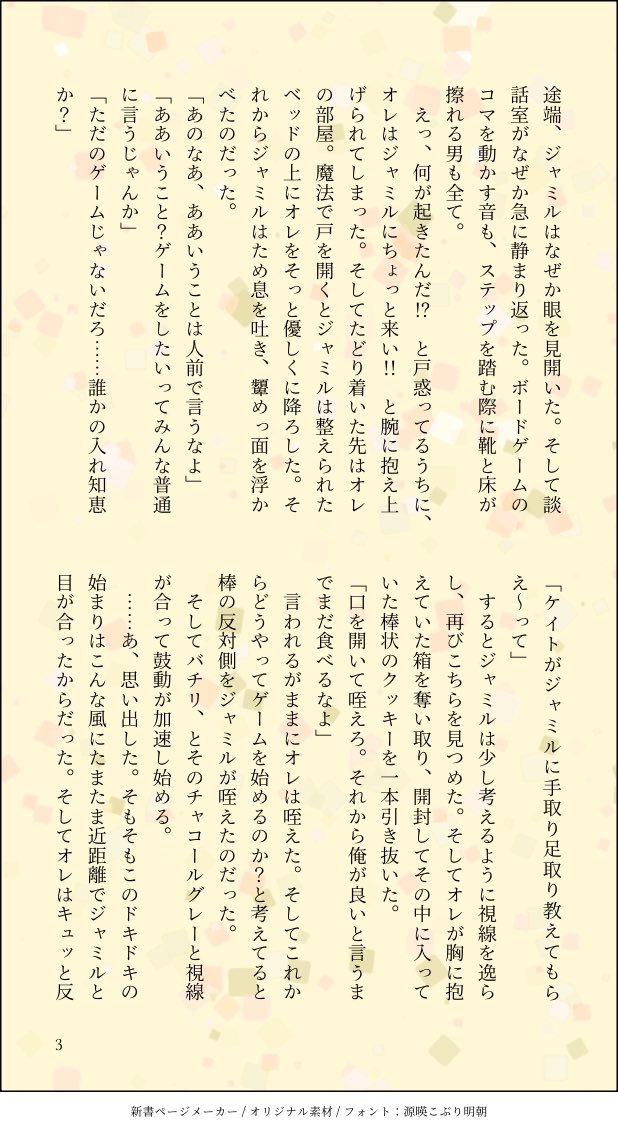 途端、ジャミルはなぜか眼を見開いた。そして談
話室がなぜか急に静まり返った。ボードゲームの
コマを動かす音も、ステップを踏む際に靴と床が
擦れる男も全て。
　えっ、何が起きたんだ!?　と戸惑ってるうちに、
オレはジャミルにちょっと来い!!　と腕に抱え上
げられてしまった。そしてたどり着いた先はオレ
の部屋。魔法で戸を開くとジャミルは整えられた
ベッドの上にオレをそっと優しくに降ろした。そ
れからジャミルはため息を吐き、顰めっ面を浮か
べたのだった。
「あのなあ、ああいうことは人前で言うなよ」
「ああいうこと？ゲームをしたいってみんな普通
に言うじゃんか」
「ただのゲームじゃないだろ……誰かの入れ知恵
か？」
「ケイトがジャミルに手取り足取り教えてもら
え〜って」
　するとジャミルは少し考えるように視線を逸ら
し、再びこちらを見つめた。そしてオレが胸に抱
えていた箱を奪い取り、開封してその中に入って
いた棒状のクッキーを一本引き抜いた。
「口を開いて咥えろ。それから俺が良いと言うま
でまだ食べるなよ」
　言われるがままにオレは咥えた。そしてこれか
らどうやってゲームを始めるのか？と考えてると
棒の反対側をジャミルが咥えたのだった。
　そしてバチリ、とそのチャコールグレーと視線
が合って鼓動が加速し始める。
　……あ、思い出した。そもそもこのドキドキの
始まりはこんな風にたまたま近距離でジャミルと
目が合ったからだった。そしてオレはキュッと反
3
新書ページメーカー / オリジナル素材 / フォント：源暎こぶり明朝